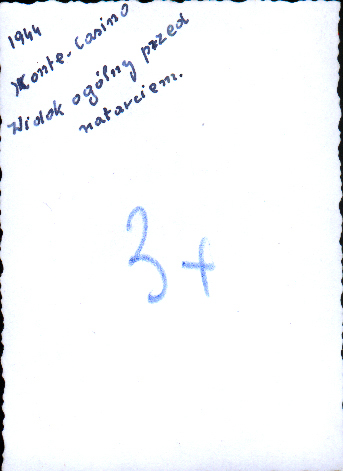 1944
Monte-Casino
Widok ogólny przed
natarciem.
3+